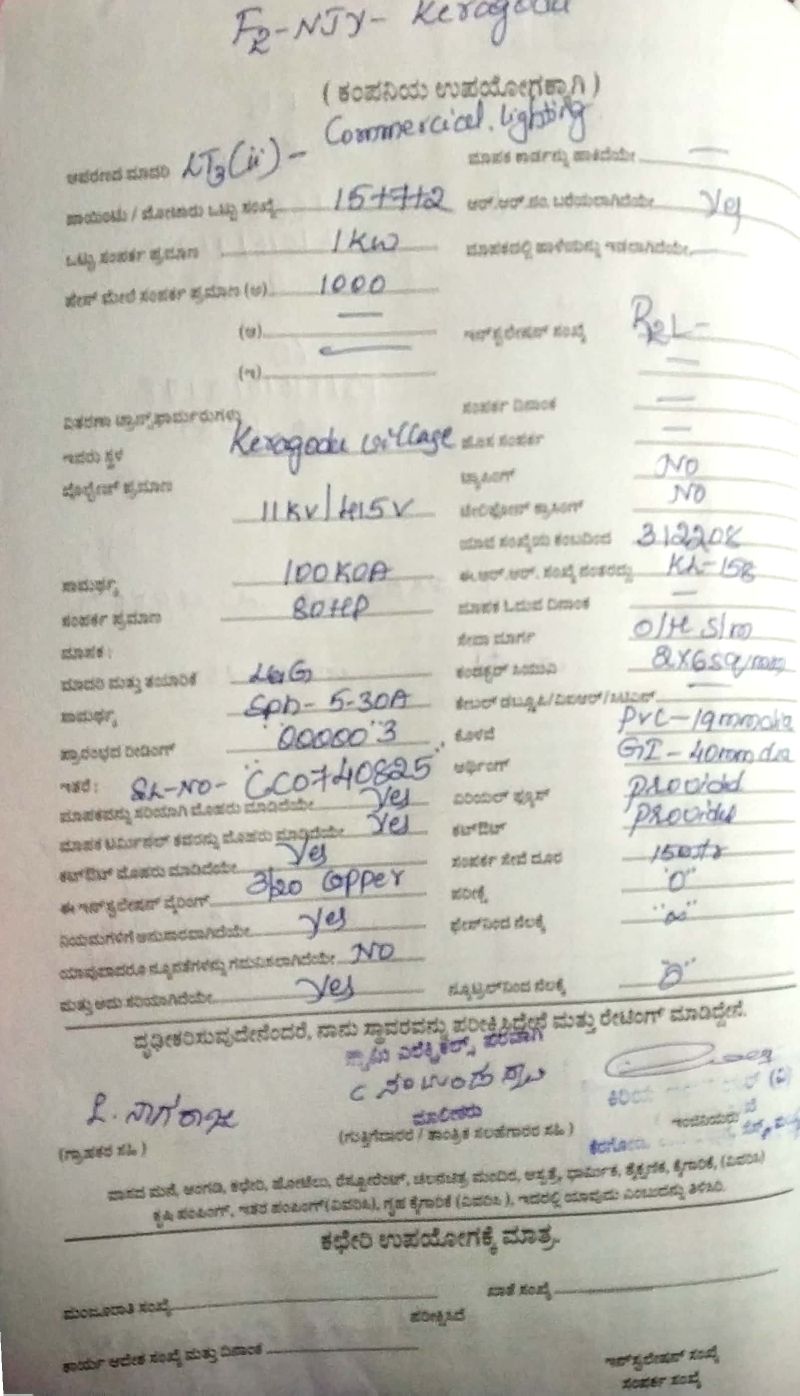 F2-NJY- Keragodu
( ಕಂಪನಿಯ ಉಪಯೋಗಕ್ಕಾಗಿ )
Commercial. lighting
ಆವರಣದ ಮಾದರಿ LT3(ii) - ಮಾಪಕ ಕಾರ್ಡನ್ನು ಹಾಕಿದೆಯೇ —
ಪಾಯಿಂಟು / ಮೋಟಾರು ಒಟ್ಟು ಸಂಖ್ಯೆ 15+7+2 ಆರ್.ಆರ್.ನಂ. ಬರೆಯಲಾಗಿದೆಯೇ Yes
ಒಟ್ಟು ಸಂಪರ್ಕ ಪ್ರಮಾಣ 1KW ಮಾಪಕದಲ್ಲಿ ಹಾಳೆಯನ್ನು ಇಡಲಾಗಿದೆಯೇ
ಫೇಸ್ ಮೇಲೆ ಸಂಪರ್ಕ ಪ್ರಮಾಣ (ಅ) 1000
(ಆ) — ಇನ್‌ಸ್ಟಲೇಷನ್ ಸಂಖ್ಯೆ
(ಇ) —
ವಿತರಣಾ ಟ್ರಾನ್ಸ್‌ಫಾರ್ಮರುಗಳು ಸಂಪರ್ಕ ದಿನಾಂಕ —
ಇದರು ಸ್ಥಳ Keragodu village ಹೊಸ ಸಂಪರ್ಕ —
ವೋಲ್ಟೇಜ್ ಪ್ರಮಾಣ ಟ್ಯಾಪಿಂಗ್ NO
11KV/415V ಟೆಲಿಫೋನ್ ಕ್ರಾಸಿಂಗ್ NO
ಯಾವ ಸಂಖ್ಯೆಯ ಕಂಬದಿಂದ 312208
ಸಾಮರ್ಥ್ಯ 100KVA ಈ.ಆರ್.ಆರ್. ಸಂಖ್ಯೆ ನಂತರದ್ದು KL-158
ಸಂಪರ್ಕ ಪ್ರಮಾಣ 80HP ಮಾಪಕ ಓದುವ ದಿನಾಂಕ —
ಮಾಪಕ : ಸೇವಾ ಮಾರ್ಗ O/H S/m
ಮಾದರಿ ಮತ್ತು ತಯಾರಿಕೆ L&G ಕಂಡಕ್ಟರ್ 2X6sq/mm
ಸಾಮರ್ಥ್ಯ 5-30A —
ಪ್ರಾರಂಭದ ರೀಡಿಂಗ್ "00000"3 ಕೊಳವೆ PVC-19mm dia
ಇತರೆ : SL-NO- "CC0740825" ಅರ್ಥಿಂಗ್ GI-40mm dia
ಮಾಪಕವನ್ನು ಸರಿಯಾಗಿ ಮೊಹರು ಮಾಡಿದೆಯೇ Yes ಏರಿಯಲ್ ಫ್ಯೂಸ್ provided
ಮಾಪಕ ಟರ್ಮಿನಲ್ ಕವರನ್ನು ಮೊಹರು ಮಾಡಿದೆಯೇ Yes ಕಟ್‌ಔಟ್ provided
ಕಟ್‌ಔಟ್ ಮೊಹರು ಮಾಡಿದೆಯೇ Yes ಸಂಪರ್ಕ ಸೇವೆ ದೂರ
ಈ ಇನ್‌ಸ್ಟಲೇಷನ್ ವೈರಿಂಗ್ 3/20 Copper ಪರೀಕ್ಷೆ "0"
ನಿಯಮಗಳಿಗೆ ಅನುಸಾರವಾಗಿದೆಯೇ Yes ಫೇಸ್‌ನಿಂದ ನೆಲಕ್ಕೆ "∞"
ಯಾವುದಾದರೂ ನ್ಯೂನತೆಗಳನ್ನು ಗಮನಿಸಲಾಗಿದೆಯೇ NO
ಮತ್ತು ಅದು ಸರಿಯಾಗಿದೆಯೇ Yes ನ್ಯೂಟ್ರಲ್‌ನಿಂದ ನೆಲಕ್ಕೆ "0"
ದೃಢೀಕರಿಸುವುದೇನೆಂದರೆ, ನಾನು ಸ್ಥಾವರವನ್ನು ಪರೀಕ್ಷಿಸಿದ್ದೇನೆ ಮತ್ತು ರೇಟಿಂಗ್ ಮಾಡಿದ್ದೇನೆ.
ಎಲೆಕ್ಟ್ರಿಕಲ್ಸ್ ಪರವಾಗಿ
L. ನಾಗರಾಜು
ಮಾಲೀಕರು
(ಗ್ರಾಹಕರ ಸಹಿ ) (ಗುತ್ತಿಗೆದಾರರ / ತಾಂತ್ರಿಕ ಸಲಹೆಗಾರರ ಸಹಿ )
ವಾಸದ ಮನೆ, ಅಂಗಡಿ, ಕಛೇರಿ, ಹೋಟೆಲು, ರೆಸ್ಟೋರೆಂಟ್, ಚಲನಚಿತ್ರ ಮಂದಿರ, ಆಸ್ಪತ್ರೆ, ಧಾರ್ಮಿಕ, ಶೈಕ್ಷಣಿಕ, ಕೈಗಾರಿಕೆ, (ವಿವರಿಸಿ)
ಕೃಷಿ ಪಂಪಿಂಗ್, ಇತರ ಪಂಪಿಂಗ್ (ವಿವರಿಸಿ), ಗೃಹ ಕೈಗಾರಿಕೆ (ವಿವರಿಸಿ ), ಇದರಲ್ಲಿ ಯಾವುದು ಎಂಬುದನ್ನು ತಿಳಿಸಿರಿ.
ಕಛೇರಿ ಉಪಯೋಗಕ್ಕೆ ಮಾತ್ರ.
ಮಂಜೂರಾತಿ ಸಂಖ್ಯೆ ಖಾತೆ ಸಂಖ್ಯೆ
ಪರೀಕ್ಷಿಸಿದೆ
ಕಾರ್ಯ ಆದೇಶ ಸಂಖ್ಯೆ ಮತ್ತು ದಿನಾಂಕ ಇನ್‌ಸ್ಟಲೇಷನ್ ಸಂಖ್ಯೆ
ಸಂಪರ್ಕ ಸಂಖ್ಯೆ